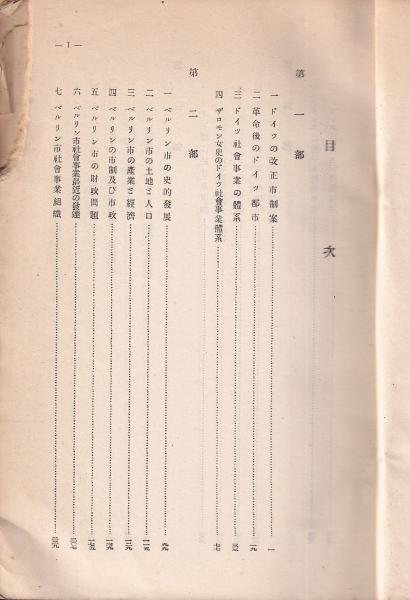 目次
第一部
一 ドイツの改正市制案 一
二 革命後のドイツ都市 一九
三 ドイツ社會事業の體系
四 ザロモン女史のドイツ社會事業體系
第二部
一 ベルリン市の史的發展
二 ベルリン市の土地と人口
三 ベルリン市の產業と經濟
四 ベルリンの市制及び市政
五 ベルリン市の財政問題
六 ベルリン市社會事業最近の發達
七 ベルリン市社會事業組織
— 1 —